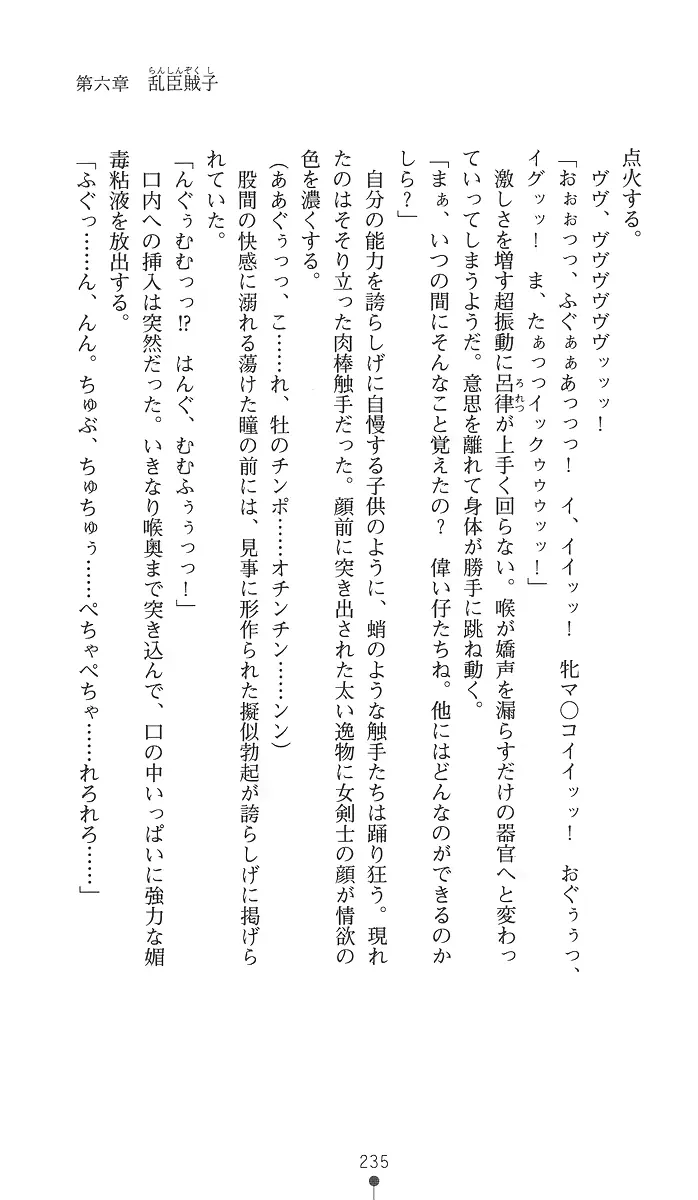 第六章　乱臣賊子
らんしんぞくし
点火する。
　ヴヴ、ヴヴヴヴヴヴッッッ！
「おぉぉつっ、ふぐぁぁあっっっ！　イ、イイッッ！　牝マ〇コイイッッ！　おぐぅぅっ、
イグッッ！　ま、たぁっっイックゥゥゥッッ！」
　激しさを増す超振動に呂律が上手く回らない。喉が嬌声を漏らすだけの器官へと変わっ
ろれつ
ていってしまうようだ。意思を離れて身体が勝手に跳ね動く。
「まぁ、いつの間にそんなこと覚えたの？　偉い仔たちね。他にはどんなのができるのか
しら？」
　自分の能力を誇らしげに自慢する子供のように、蛸のような触手たちは踊り狂う。現れ
たのはそそり立った肉棒触手だった。顔前に突き出された太い逸物に女剣士の顔が情欲の
色を濃くする。
（ああぐぅっっ、こ……れ、牡のチンポ……オチンチン……ンン）
　股間の快感に溺れる蕩けた瞳の前には、見事に形作られた擬似勃起が誇らしげに掲げら
れていた。
「んぐぅむむっっ!?　はんぐ、むむふぅぅっっ！」
　口内への挿入は突然だった。いきなり喉奥まで突き込んで、口の中いっぱいに強力な媚
毒粘液を放出する。
「ふぐっ……ん、んん。ちゅぶ、ちゅちゅぅ……ぺちゃぺちゃ……れろれろ……」
235